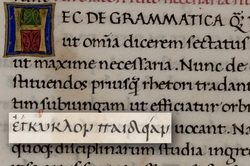 EC DE GRAMMATICA Q̃
ut om̃ia dicerem sectatus
ut maxime necessaria. Nunc de
stituendos priusqꝫ rhetori tradant
tum subiungam ut efficiatur orbi
ἐγκυκλον παιδιαν uocant. Na
quoq; disciplinarum studia ingr